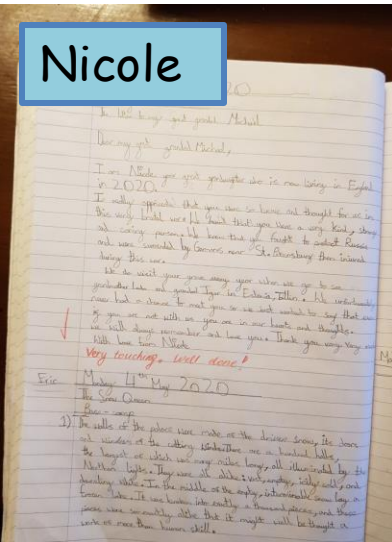 Nicole
2020
Dear my great grandad Michael,
I am Nicole your great grandaughter who is now living in England
in 2020.
I really appriciate that you were so brave and thought for us in
this very brutal war. We heard that you were a very kind, strong
and caring person. We know that you fought to protect Russia
and were wounded by Germans near St. Petersburg then injured
during this war.
We do visit your grave every year when we go to see
grandmother and grandad Igor in Estonia, Tallinn. We unfortunately
never had a chance to meet you so we just wanted to say that even
if you are not with us you are in our hearts and thoughts.
We will always remember and love you. Thank you very very much
With love from Nicole
Very touching. Well done!
Monday 4th May 2020
The Snow Queen
1) The walls of the palace were made of the driven snow, its doors
and windows of the cutting winds. There were a hundred halls,
the largest of which was many miles long, all illuminated by the
Northern Lights. They were all alike: vast, empty, icily cold, and
dazzling white. In the middle of the empty, interminable snow lay a
frozen lake. It was broken into exactly a thousand pieces, and these
pieces were so exactly alike that it might well be thought a
work of more than human skill.